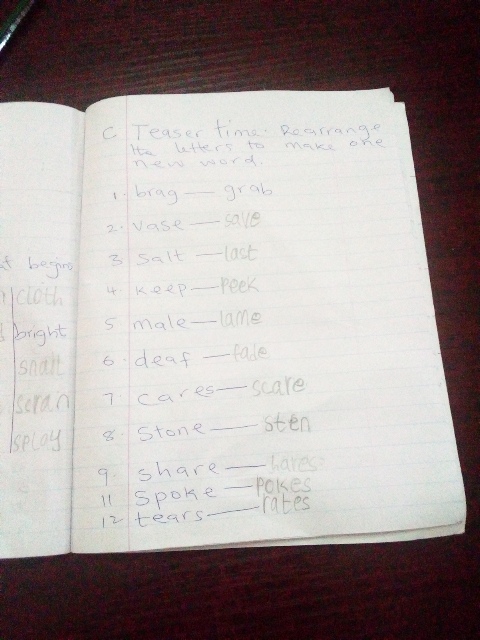 f begins
cloth
bright
scran
splay
C. Teaser time: Rearrange
the letters to make one
new word.
1. brag — grab
2. vase — save
3. Salt — last
4. keep — peek
5. male — lame
6. deaf — fade
7. cares — scare
8. Stone — sten
9. share — hares
11 spoke — pokes
12 tears — rates